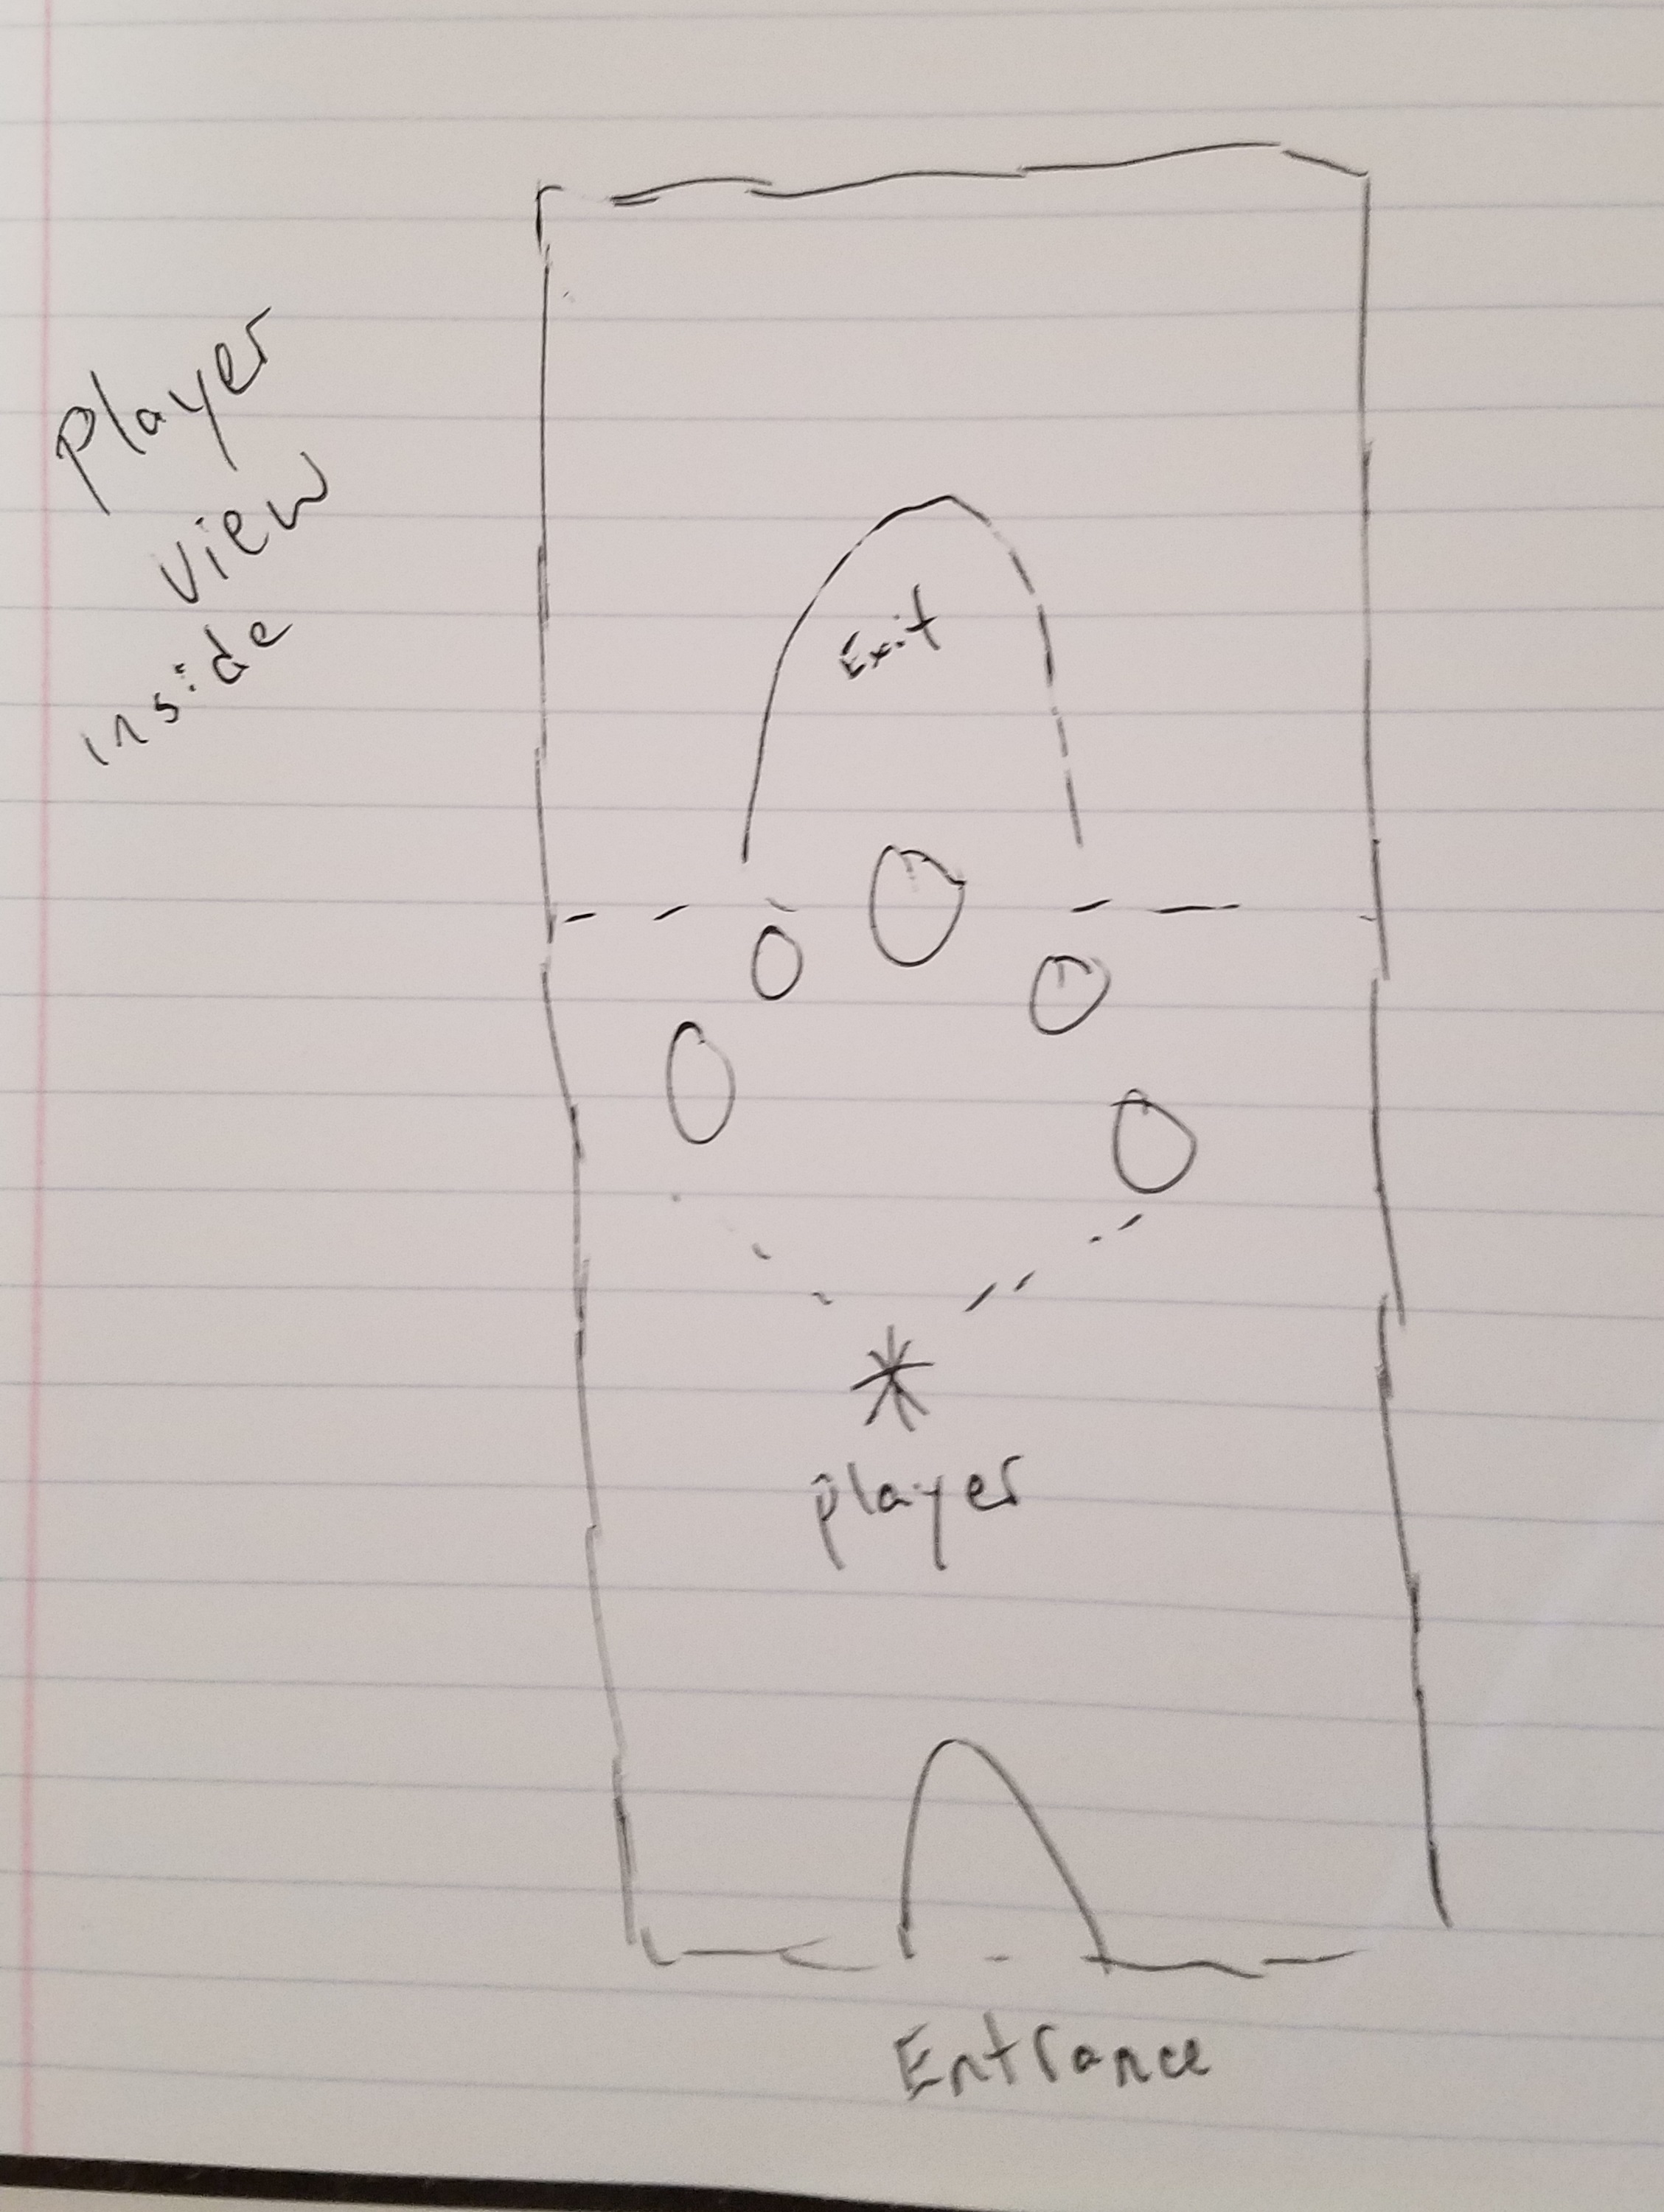 Player
view
inside
Exit
player
Entrance